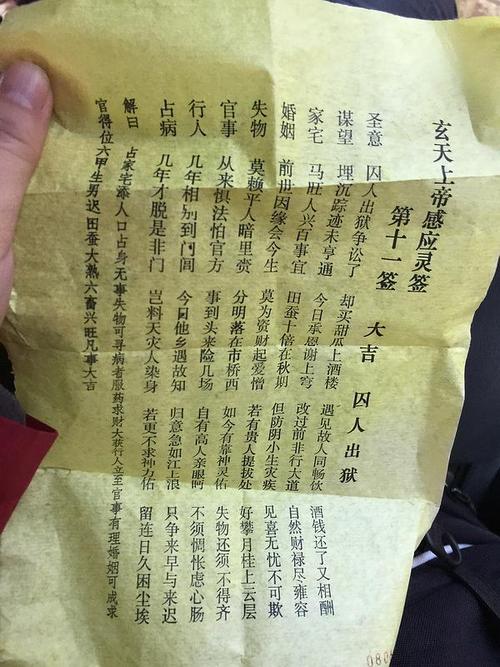 玄天上帝感应灵签
第十一签 大吉 囚人出狱
圣意 囚人出狱争讼了 却买甜瓜上酒楼 遇见故人同畅饮 酒钱还了又相酬
谋望 埋沉踪迹未亨通 今日承恩谢上穹 改过前非行大道 自然财禄尽雍容
家宅 马旺人兴百事宜 田蚕十倍在秋期 但防阴小生灾疾 见喜无忧不可欺
婚姻 前世因缘会今生 莫为资财起爱憎 若有贵人提拔处 好攀月桂上云层
失物 莫赖平人暗里赍 分明落在市桥西 如今有靠神灵佑 失物还须不得齐
官事 从来惧法怕官方 事到头来险几场 自有高人亲眼 不须惆怅虑心肠
行人 几年相别到门闾 今日他乡遇故知 归意急如江上浪 只争来早与来迟
占病 几年才脱是非门 岂料天灾人染身 若更不求神力佑 留连日久困尘埃
解曰 占家宅添人口占身无事失物可寻病者服药求财大获行人立至官事有理婚姻可成求
官得位六甲生男迟田蚕大熟六畜兴旺凡事大吉